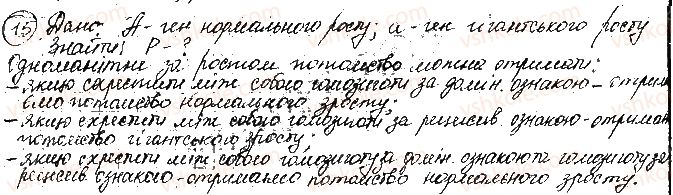 15 Дано: А - ген нормального росту; а - ген гігантського росту
Знайти: Р - ?
Одноманітне за ростом потомство можна отримати:
- якщо схрестити між собою гомозиготи за домін. ознакою - отрим
ємо потомство нормального зросту;
- якщо схрестити між собою гомозиготи за рецесив. ознакою - отриман
потомство гігантського зросту
- якщо схрестити між собою гомозиготу за домін. ознакою та гомозиготу за
рецесив. ознакою - отримаємо потомство нормального зросту.